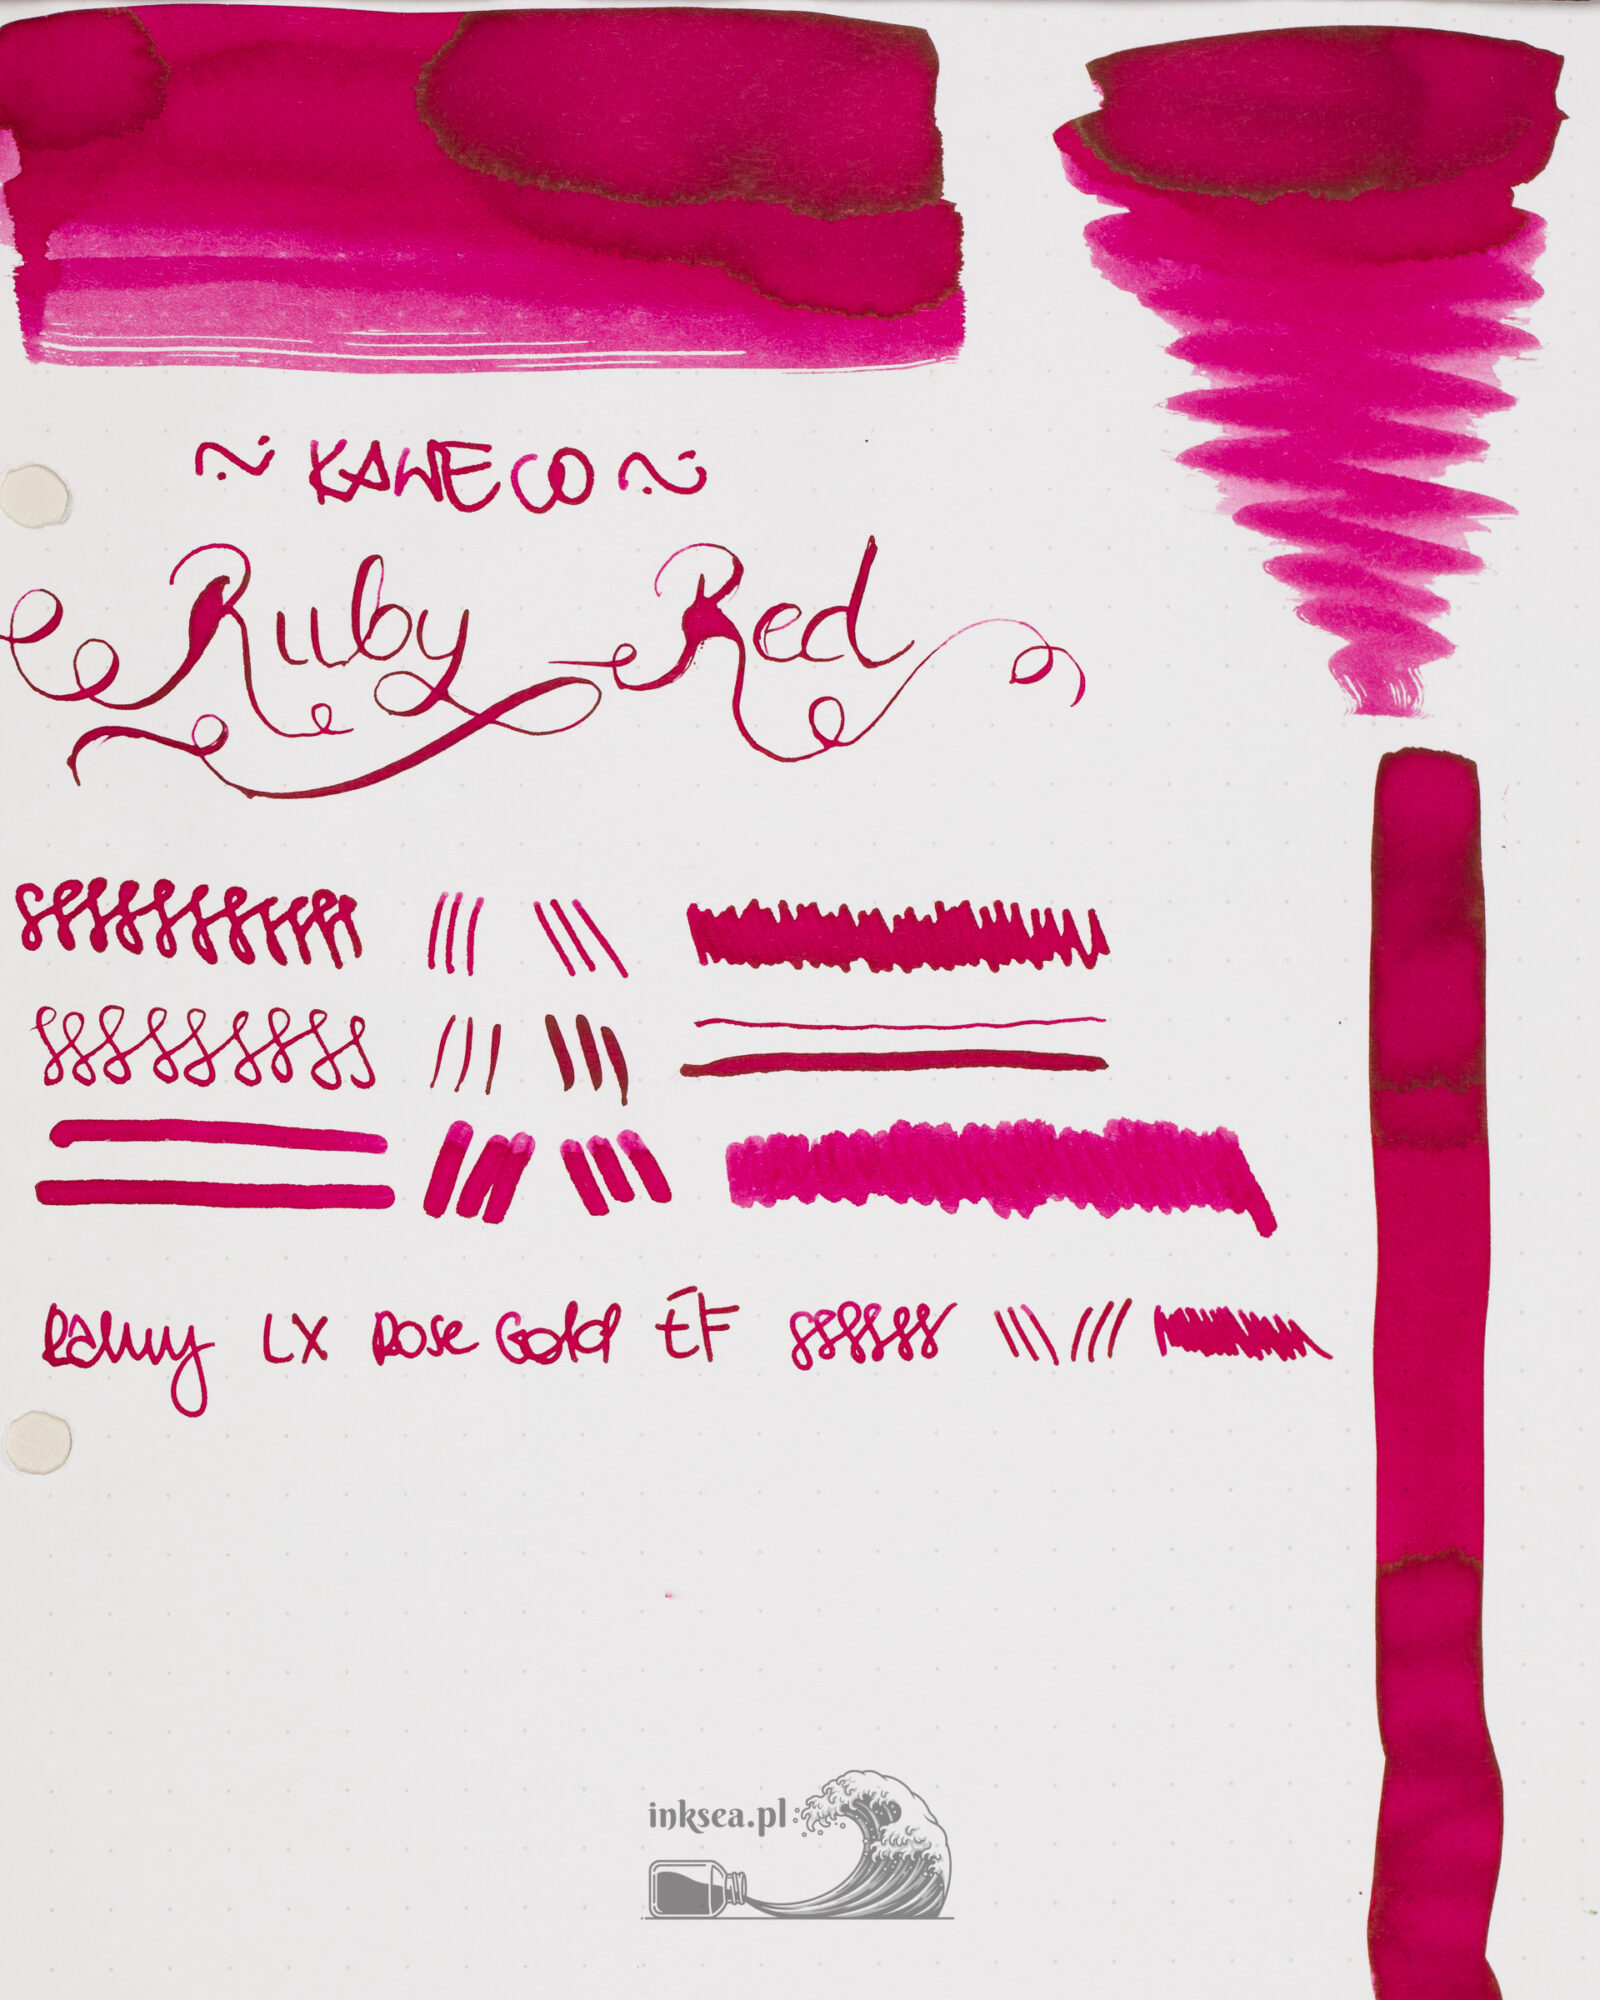 ~ KAWECO ~
Ruby Red
Lamy LX Rose Gold EF
inksea.pl